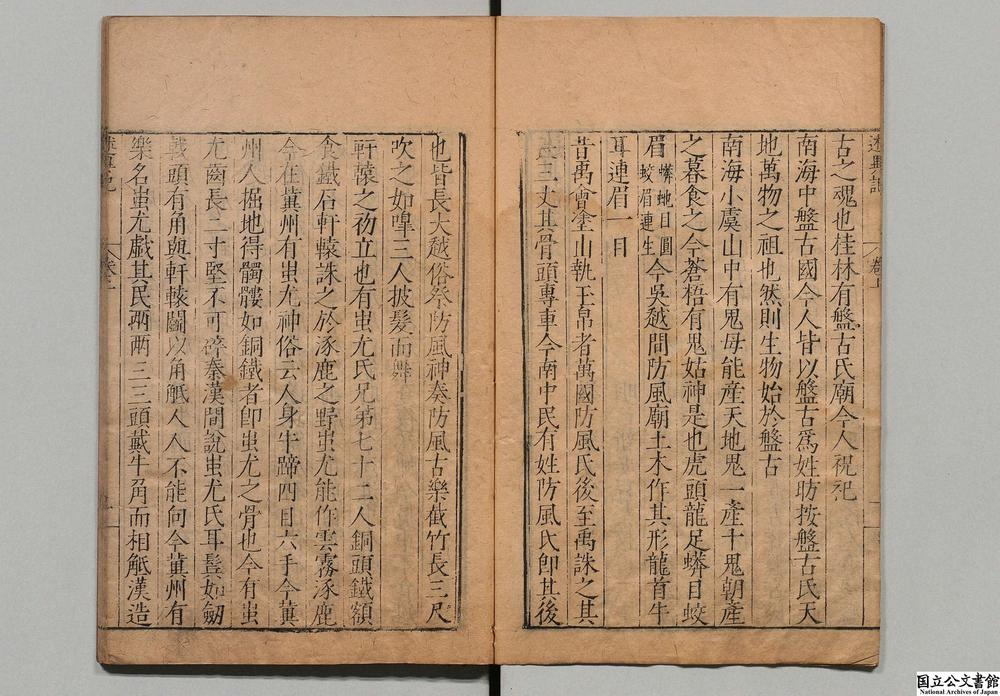 古之魂也桂林有盤古氏廟今人祝祀
南海中盤古國今人皆以盤古爲姓昉按盤古氏天
地萬物之祖也然則生物始於盤古
南海小虞山中有鬼母能產天地鬼一產十鬼朝產
之暮食之今蒼梧有鬼姑神是也虎頭龍足蟒目蛟
眉蟒虵目圓蛟眉連生今吳越間防風廟土木作其形龍首牛
耳連眉一目
昔禹會塗山執玉帛者萬國防風氏後至禹誅之其
長三丈其骨頭專車今南中民有姓防風氏卽其後
也皆長大越俗祭防風神奏防風古樂截竹長三尺
吹之如嘷三人披髮而舞
軒轅之初立也有蚩尤氏兄弟七十二人銅頭鐵額
食鐵石軒轅誅之於涿鹿之野蚩尤能作雲霧涿鹿
今在冀州有蚩尤神俗云人身牛蹄四目六手今冀
州人掘地得髑髏如銅鐵者卽蚩尤之骨也今有蚩
尤齒長二寸堅不可碎秦漢間說蚩尤氏耳鬢如劒
戟頭有角與軒轅鬬以角觝人人不能向今冀州有
樂名蚩尤戲其民兩兩三三頭戴牛角而相觝漢造
述異記
卷上
国立公文書館
National Archives of Japan